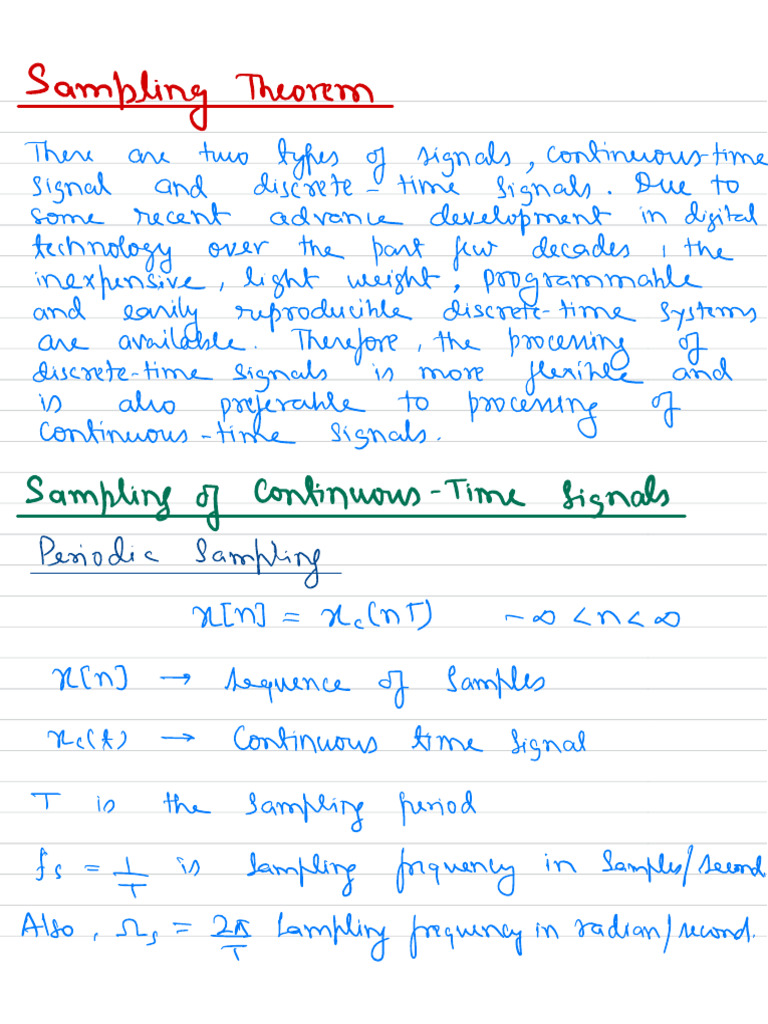 Sampling Theorem
There are two types of signals, continuous-time
signal and discrete-time signals. Due to
some recent advance development in digital
technology over the past few decades, the
inexpensive, light weight, programmable
and easily reproducible discrete-time systems
are available. Therefore, the processing of
discrete-time signals is more flexible and
is also preferable to processing of
continuous-time signals.
Sampling of Continuous-Time Signals
Periodic Sampling
x[n] = x_c(nT) -∞ < n < ∞
x[n] → sequence of samples
x_c(t) → Continuous time signal
T is the sampling period
f_s = 1/T is sampling frquency in samples/second
Also, Ω_s = 2π/T sampling frequency in radian/second.